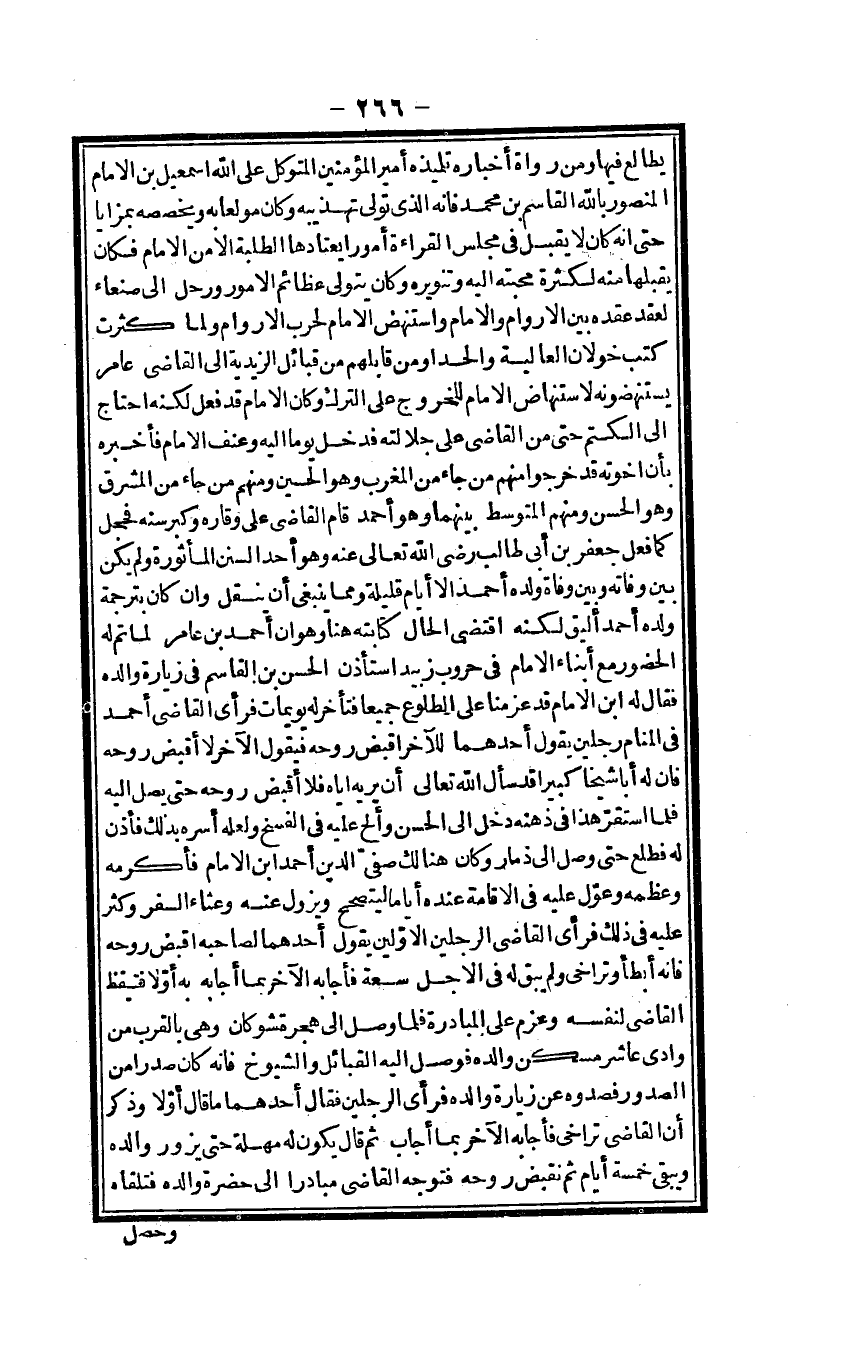 - ٢٦٦ -
يطالع فيها ومن رواة أخباره تلميذه أمير المؤمنين المتوكل على الله اسمعيل بن الامام
المنصور بالله القاسم بن محمد فانه الذى تولى تهذيبه وكان مولعا به ويخصصه بمزايا
حتى انه كان لا يقبل فى مجلس القراءة أمورا يعتادها الطلبة الا من الامام فكان
يقبلها منه لكثرة محبته اليه وتنويره وكان يتولى عظائم الامور ورحل الى صنعاء
لعقد عقده بين الاروام والامام واستنهض الامام لحرب الاروام ولما كثرت
كتب خولان العالية والحدا ومن قابلهم من قبائل الزيدية الى القاضى عامر
يستنهضونه لاستنهاض الامام للخروج على الترك وكان الامام قد فعل لكنه احتاج
الى الكتم حتى من القاضى على جلالته فدخل يوما اليه وعنف الامام فأخبره
بأن اخوته قد خرجوا منهم من جاء من المغرب وهو الحسين ومنهم من جاء من المشرق
وهو الحسن ومنهم المتوسط بينهما وهو أحمد قام القاضى على وقاره وكبر سنه فحجل
كما فعل جعفر بن أبى طالب رضى الله تعالى عنه وهو أحد السنن المأثورة ولم يكن
بين وفاته وبين وفاة ولده أحمد الا أيام قليلة ومما ينبغى أن ينقل وان كان بترجمة
ولده أحمد أليق لكنه اقتضى الحال كتابته هنا وهو ان أحمد بن عامر لما تم له
الحضور مع أبناء الامام فى حروب زبيد استأذن الحسن بن القاسم فى زيارة والده
فقال له ابن الامام قد عزمنا على الطلوع جميعا فتأخر له يويمات فرأى القاضى أحمد
فى المنام رجلين يقول أحدهما للآخر اقبض روحه فيقول الآخر لا أقبض روحه
فان له أبا شيخا كبيرا قد سأل الله تعالى أن يريه اياه فلا أقبض روحه حتى يصل اليه
فلما استقر هذا فى ذهنه دخل الى الحسن وألح عليه فى الفسخ ولعله أسره بذلك فأذن
له فطلع حتى وصل الى ذمار وكان هنالك صفىّ الدين أحمد ابن الامام فأكرمه
وعظمه وعوّل عليه فى الاقامة عنده أياما ليتصحح ويزول عنه وعثاء السفر وكثر
عليه فى ذلك فرأى القاضى الرجلين الاوّلين يقول أحدهما لصاحبه اقبض روحه
فانه أبطأ وتراخى ولم يبق له فى الاجل سعة فأجابه الآخر بما أجابه به أوّلا فتيقظ
القاضى لنفسه وعزم على المبادرة فلما وصل الى هجرة شوكان وهى بالقرب من
وادى عاشر مسكن والده فوصل اليه القبائل والشيوخ فانه كان صدرا من
الصدور فصدوه عن زيارة والده فرأى الرجلين فقال أحدهما ما قال أوّلا وذكر
أن القاضى تراخى فأجابه الآخر بما أجاب ثم قال يكون له مهلة حتى يزور والده
ويبقى خمسة أيام ثم نقبض روحه فتوجه القاضى مبادرا الى حضرة والده فتلقاه
وحصل